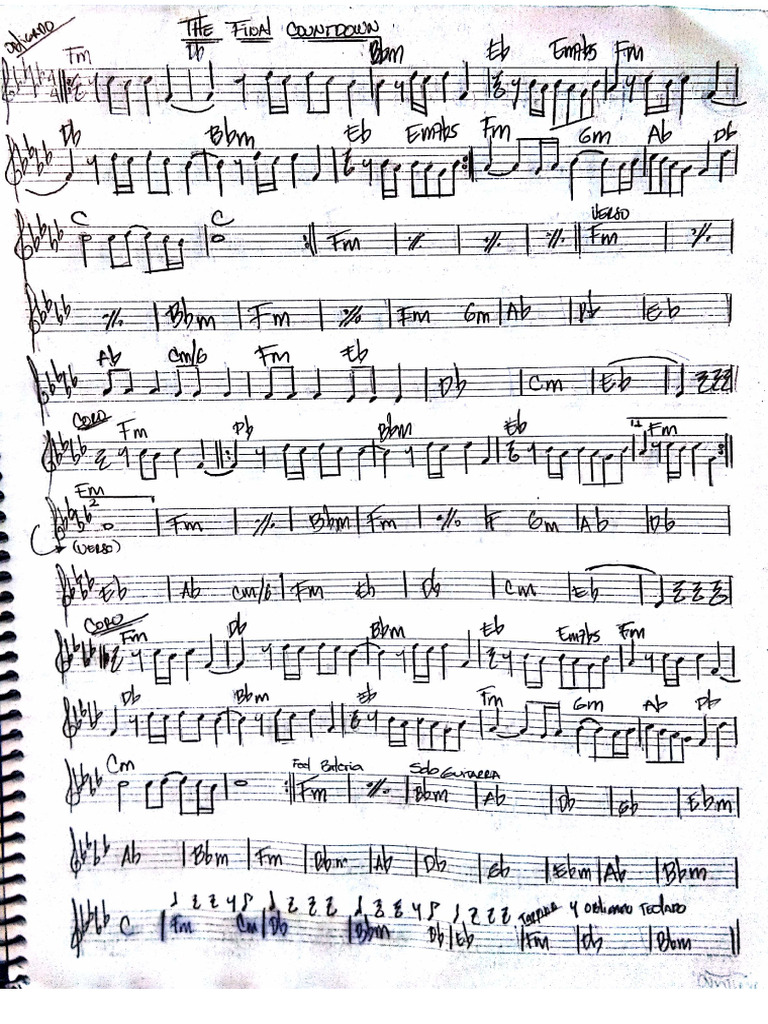 Obligado
THE FINAL COUNTDOWN
Fm Db Bbm Eb Em7b5 Fm
Db Bbm Eb Em7b5 Fm Gm Ab Db
C C Fm VERSO Fm
Bbm Fm Fm Gm Ab Db Eb
Ab Cm/G Fm Eb Db Cm Eb
CORO
Fm Db Bbm Eb 1. Fm
Fm
2
Fm Bbm Fm F Gm Ab Db
(VERSO)
Eb Ab Cm/G Fm Eb Db Cm Eb
CORO
Fm Db Bbm Eb Em7b5 Fm
Db Bbm Eb Fm Gm Ab Db
Cm Feel Bateria Fm Solo GUITARRA Bbm Ab Db Eb Ebm
Ab Bbm Fm Bbm Ab Db Eb Ebm Ab Bbm
Y Obligado Teclado
C Fm Cm Db Bbm Db Eb Fm Db Bbm